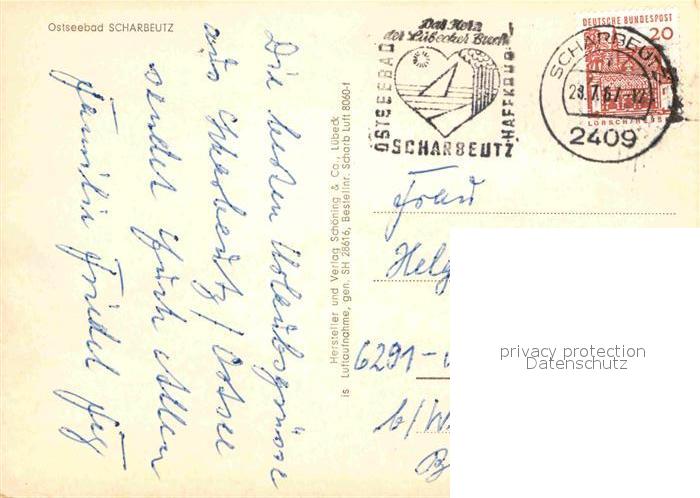 Ostseebad SCHARBEUTZ
Die besten Urlaubsgrüsse
aus Scharbeutz/Ostsee
sendet Euch Allen
Familie Friedel
Hersteller und Verlag Schöning & Co., Lübeck
is Luftaufnahme, gen. SH 28616, Bestellnr. Scharb Luft 8060-1
Das Herz
der Lübecker Bucht
OSTSEEBAD
HAFFKRUG
SCHARBEUTZ
DEUTSCHE BUNDESPOST
20
LORSCH/HESSEN
SCHARBEUTZ
28.7.67
2409
Frau
Helg
6291-
b/W
privacy protection
Datenschutz